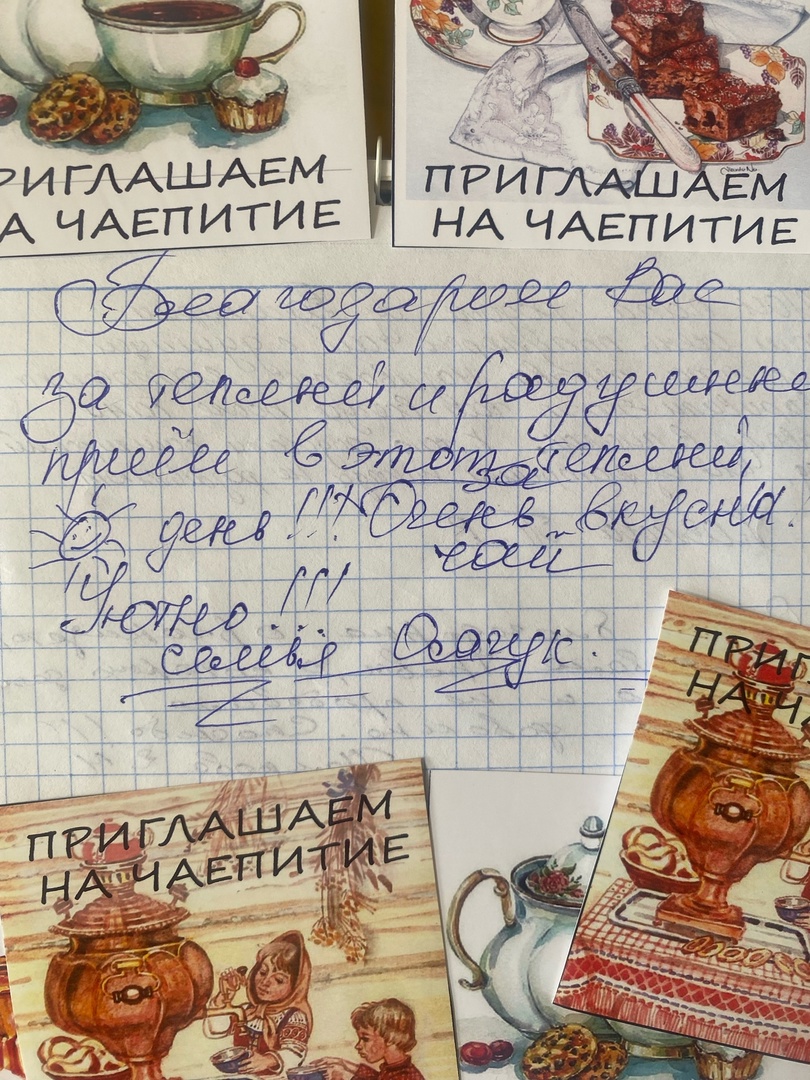 РИГЛАШАЕМ
А ЧАЕПИТИЕ
ПРИГЛАШАЕМ
НА ЧАЕПИТИЕ
Благодарим Вас
за теплый и радушны
приём в этот теплый,
за
день!!! Очень вкусна.
чай
Уютно!!!
семья Осачук.
ПРИГ
НА Ч
ПРИГЛАШАЕМ
НА ЧАЕПИТИЕ